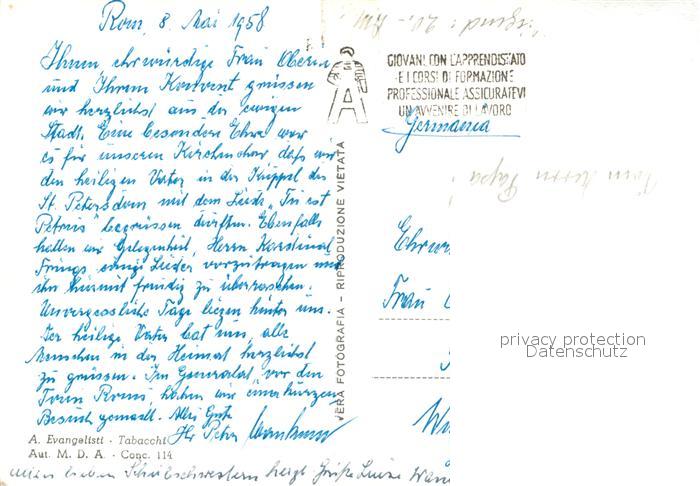 Rom, 8. Mai 1958
Ihnen, ehrwürdige Frau Oberin
und Ihrem Konvent grüssen
wir herzlichst aus der ewigen
Stadt. Eine besondere Ehre war
es für unseren Kirchenchor, daß wir
den heiligen Vater in der Kuppel des
St. Petersdom mit dem Liede "Tu est
Petrus" begrüssen durften. Ebenfalls
hatten wir Gelegenheit, Herrn Kardinal
Frings einige Lieder vorzutragen und
ihn hiermit freudig zu überraschen.
Unvergessliche Tage liegen hinter uns.
Der heilige Vater bat uns, alle
Menschen in der Heimat herzlichst
zu grüssen. Im Generalat, vor den
Toren Roms, haben wir einen kurzen
Besuch gemacht. Alles Gute
Ihr Peter
A. Evangelisti - Tabacchi
Aut. M. D. A. - Conc. 114
lieben Schulschwestern herzl. Grüße Luise
VERA FOTOGRAFIA - RIPRODUZIONE VIETATA
GIOVANI, CON L'APPRENDISTATO
E I CORSI DI FORMAZIONE
PROFESSIONALE ASSICURATEVI
UN AVVENIRE DI LAVORO
Germania
Ehrw
Frau
privacy protection
Datenschutz